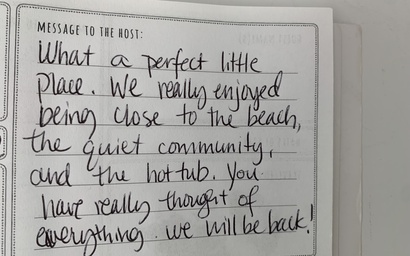 MESSAGE TO THE HOST:
What a perfect little
place. We really enjoyed
being close to the beach,
the quiet community,
and the hot tub. You
have really thought of
everything. We will be back!